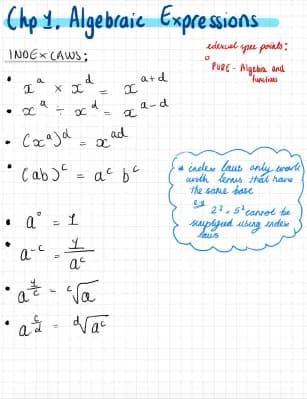 Chp 1. Algebraic Expressions
edexcel spec points:
PURE - Algebra and
functions
INDEX LAWS:
• xᵃ × xᵈ = xᵃ⁺ᵈ
• xᵃ ÷ xᵈ = xᵃ⁻ᵈ
• (xᵃ)ᵈ = xᵃᵈ
• (ab)ᶜ = aᶜ bᶜ
* index laws only work
with terms that have
the same base
e.g
2³ × 5² cannot be
simplified using index
laws
• a⁰ = 1
• a⁻ᶜ = 1/aᶜ
• a^(1/c) = ᶜ√a
• a^(c/d) = ᵈ√aᶜ